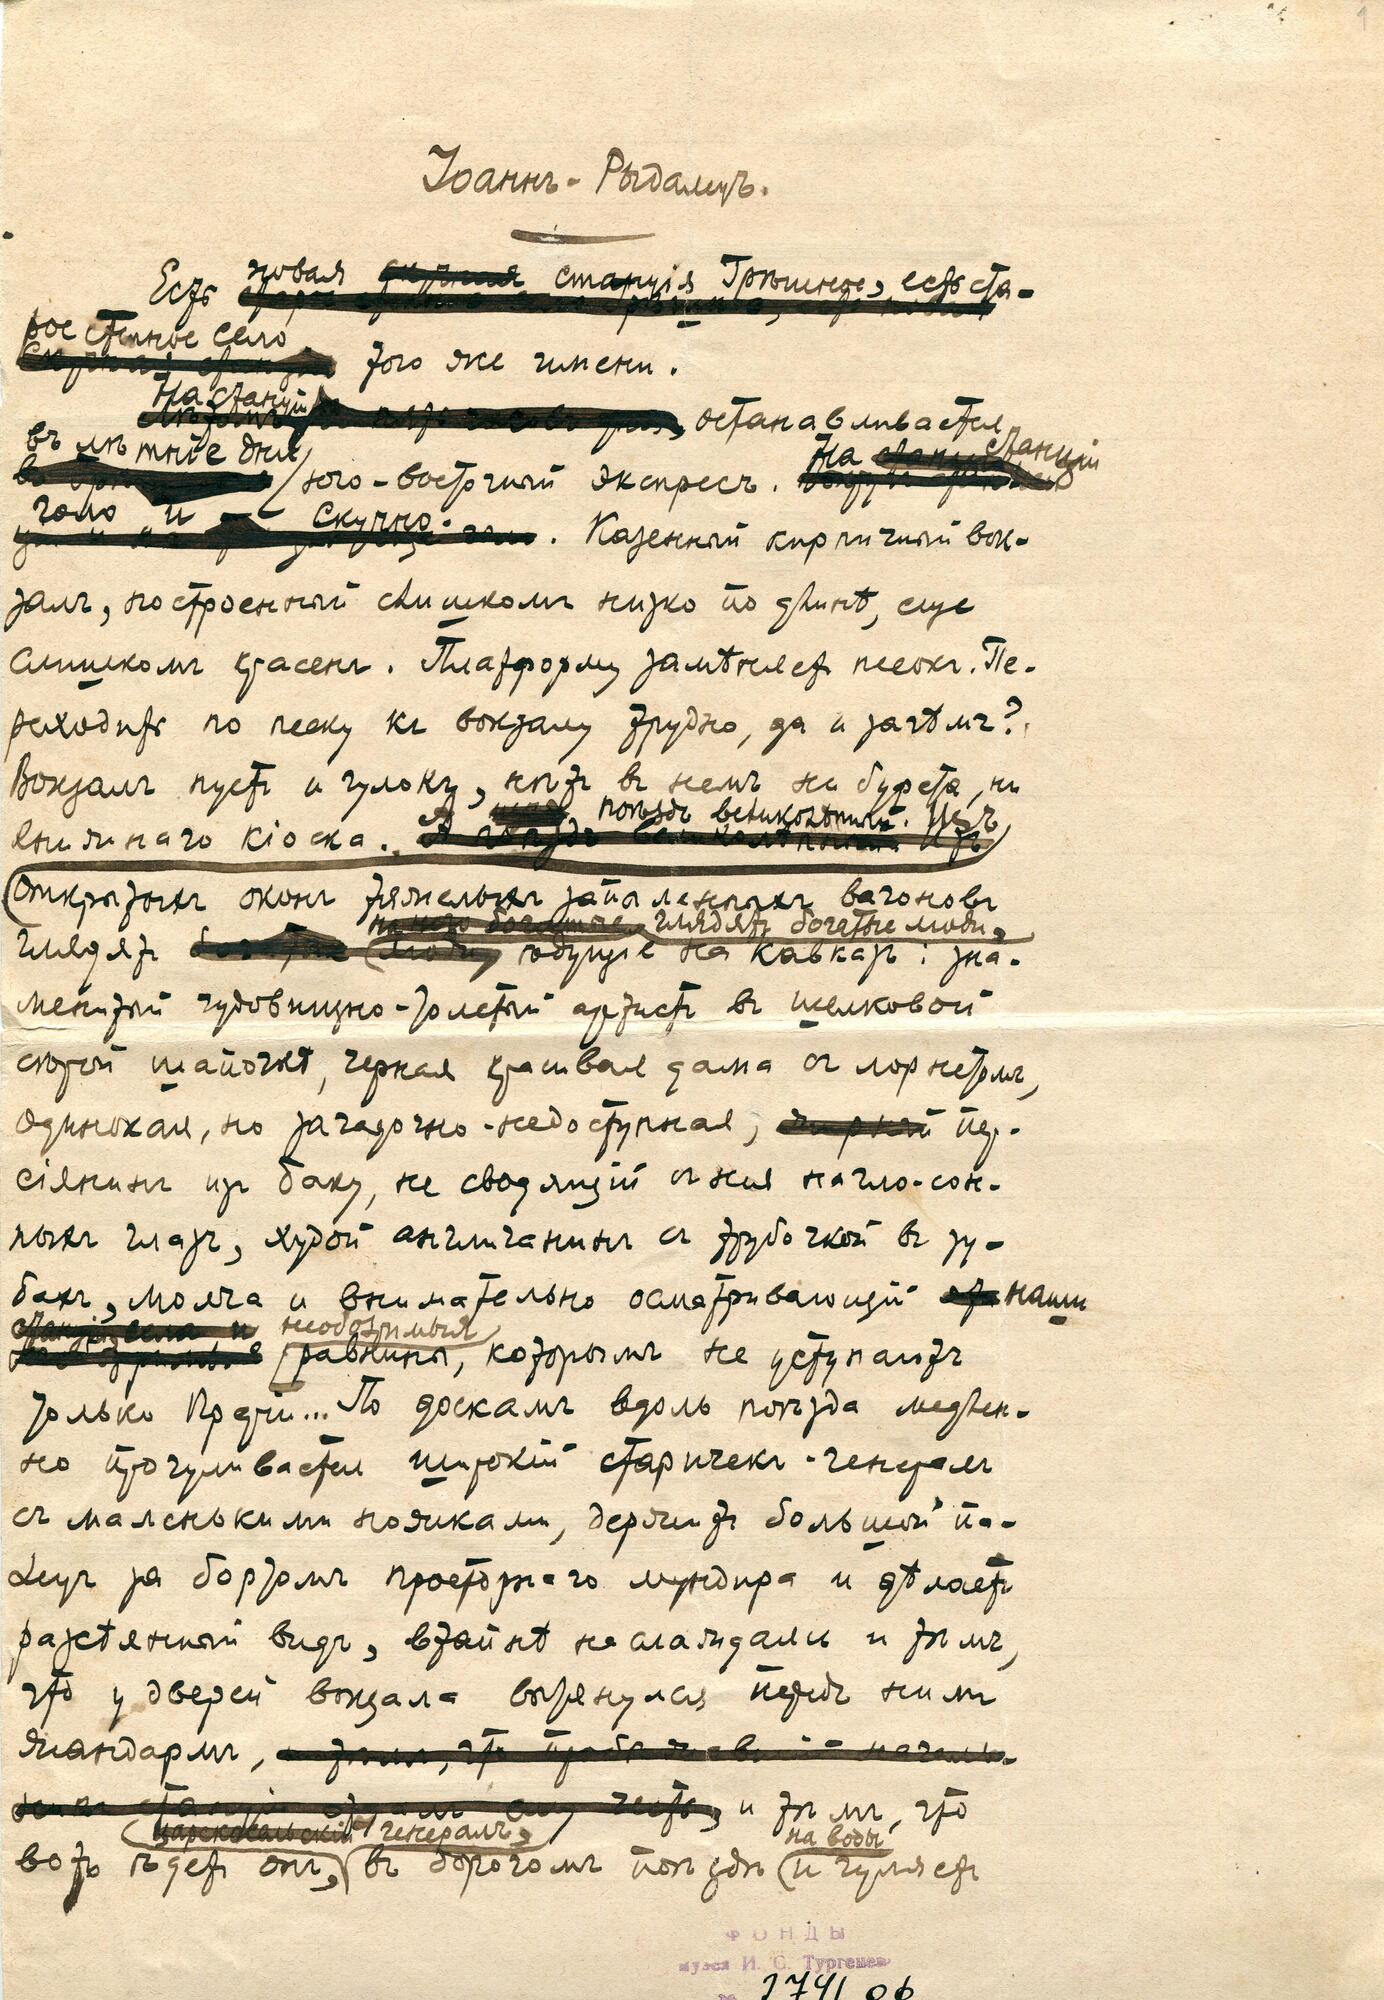 1
Іоаннъ-Рыдалецъ.
Есть новая станція Грѣшное, есть ста-
рое степное село
того же имени.
На станціи останавливается
въ лѣтніе дни
юго-восточный экспресъ. На станціи
голо и скучно. Казенный кирпичный вок-
залъ, построенный слишкомъ низко по длинѣ, еще
слишкомъ красенъ. Платформу замѣняетъ песокъ. Пе-
реходить по песку къ вокзалу трудно, да и зачѣмъ?
Вокзалъ пустъ и гулокъ, нѣтъ въ немъ ни буфета, ни
поѣздъ великолѣпный. Изъ
книжнаго кіоска.
открытыхъ оконъ тяжелыхъ запыленныхъ вагоновъ
глядятъ богатые люди,
глядятъ ѣдущіе на Кавказъ: зна-
менитый чудовищно-толстый артистъ въ шелковой
шапочкѣ, черная красивая дама съ лорнетомъ,
одинокая, но загадочно-недоступная, пер-
сіянинъ изъ Баку, не сводящій съ нея нагло-сон-
ныхъ глазъ, худой англичанинъ съ трубочкой въ зу-
бахъ, молча и внимательно осматривающій наши
необозримыя
равнины, которымъ не уступаютъ
только Прэріи... По доскамъ вдоль поѣзда медлен-
но прогуливается широкій старичекъ-генералъ
съ маленькими ножками, держитъ большой па-
лецъ за бортомъ просторнаго мундира и дѣлаетъ
разсѣянный видъ, втайнѣ наслаждаясь и тѣмъ,
что у дверей вокзала вытянулся передъ нимъ
жандармъ,
и тѣмъ, что
царскосельскій генералъ, на воды
вотъ ѣдетъ онъ, въ дорогомъ поѣздѣ и гуляетъ
ФОНДЫ
музея И. С. Тургенева
№ 2741 оф